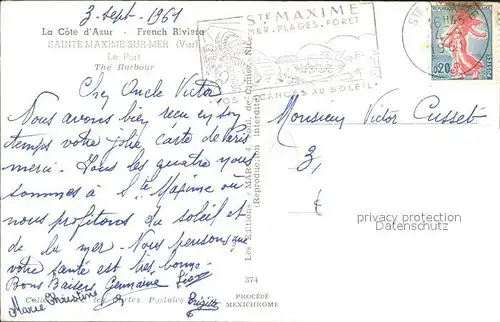 3 sept - 1961
La Côte d'Azur - French Riviera
SAINTE-MAXIME-SUR-MER (Var)
Le Port
The Harbour
STE MAXIME
MER. PLAGES. FORET
VOS VACANCES AU SOLEIL
0,20
POSTES
Cher Oncle Victor
Nous avons bien reçu en son
temps votre jolie carte de Paris
merci. Tous les quatre nous
sommes à Ste Maxime où
nous profitons du soleil et
de la mer. Nous pensons que
votre santé est très bonne.
Bons Baisers Germaine
Marie Christine
Brigitte
Monsieur Victor Cusset
3,
privacy protection
Datenschutz
Les Editions "MAR"
(Reproduction interdite)
374
Cartes Postales
PROCÉDÉ
MEXICHROME